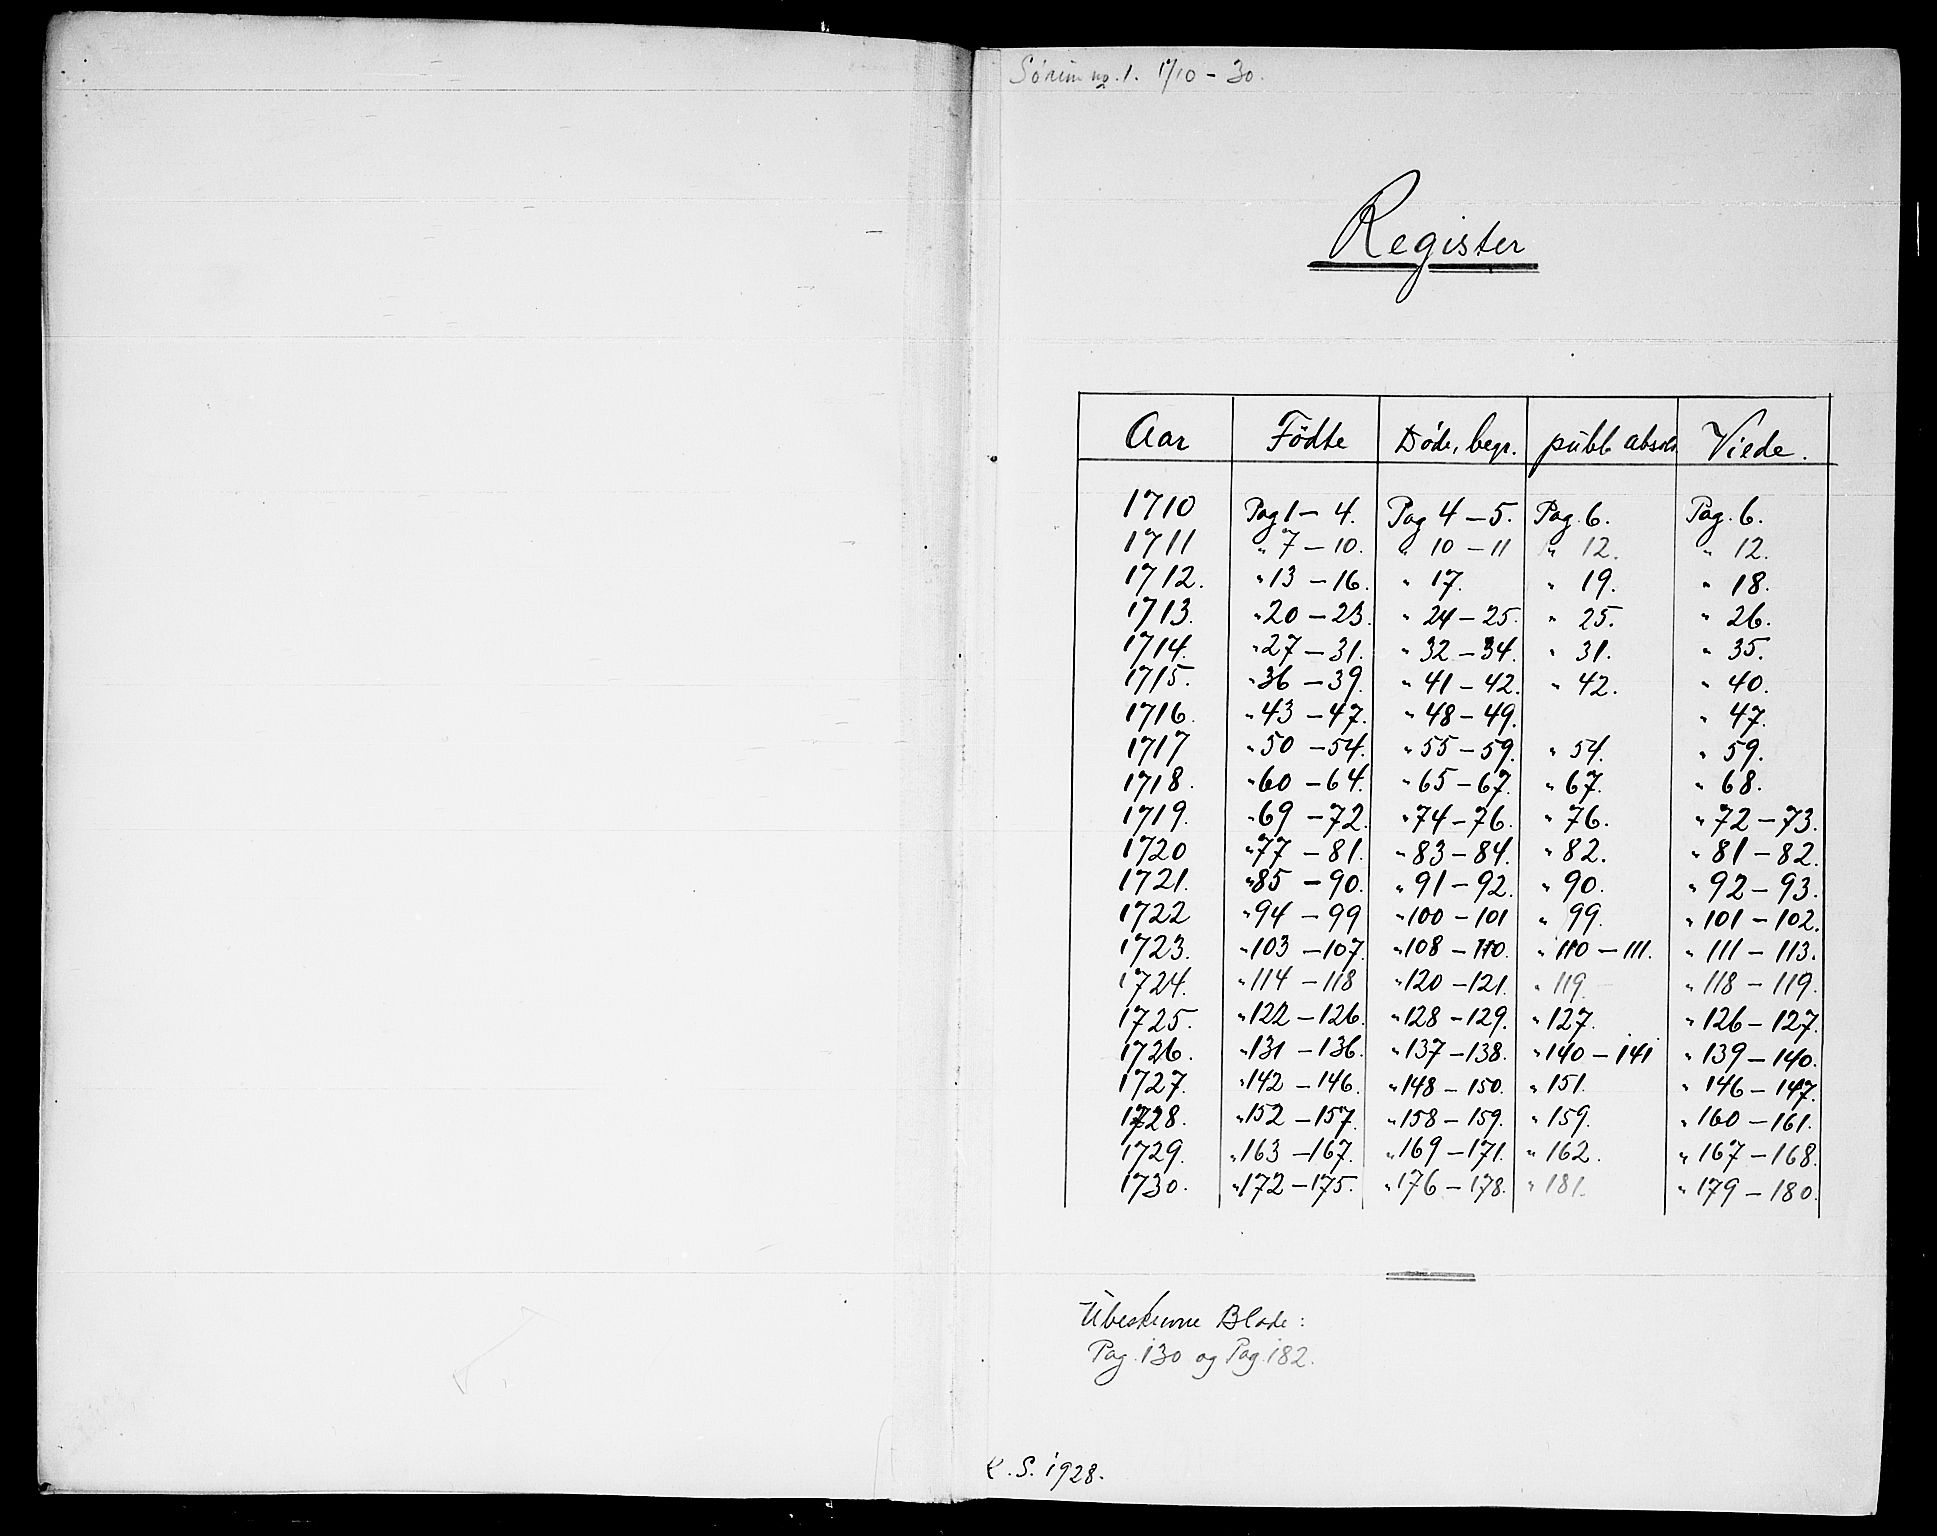 Sörum no. 1. 1710 - 30.
Register
Aar Födte Döde, begr. publ. absol. Viede.
1710 Pag 1 - 4. Pag 4 - 5. Pag. 6. Pag. 6.
1711 " 7 - 10. " 10 - 11 " 12. " 12.
1712. " 13 - 16. " 17. " 19. " 18.
1713. " 20 - 23. " 24 - 25. " 25. " 26.
1714. " 27 - 31. " 32 - 34. " 31. " 35.
1715. " 36 - 39. " 41 - 42. " 42. " 40.
1716. " 43 - 47. " 48 - 49. " 47.
1717 " 50 - 54. " 55 - 59. " 54. " 59.
1718. " 60 - 64. " 65 - 67. " 67. " 68.
1719. " 69 - 72. " 74 - 76. " 76. " 72 - 73.
1720 " 77 - 81. " 83 - 84. " 82. " 81 - 82.
1721. " 85 - 90. " 91 - 92. " 90. " 92 - 93.
1722 " 94 - 99 " 100 - 101 " 99. " 101 - 102.
1723. " 103 - 107. " 108 - 110. " 110 - 111. " 111 - 113.
1724. " 114 - 118 " 120 - 121. " 119. " 118 - 119.
1725. " 122 - 126. " 128 - 129. " 127. " 126 - 127.
1726. " 131 - 136. " 137 - 138. " 140 - 141 " 139 - 140.
1727. " 142 - 146. " 148 - 150. " 151. " 146 - 147.
1728. " 152 - 157. " 158 - 159. " 159. " 160 - 161.
1729. " 163 - 167. " 169 - 171. " 162. " 167 - 168.
1730. " 172 - 175. " 176 - 178. " 181. " 179 - 180.
Ubeskrevne Blade:
Pag. 130 og Pag. 182.
K. S. 1928.